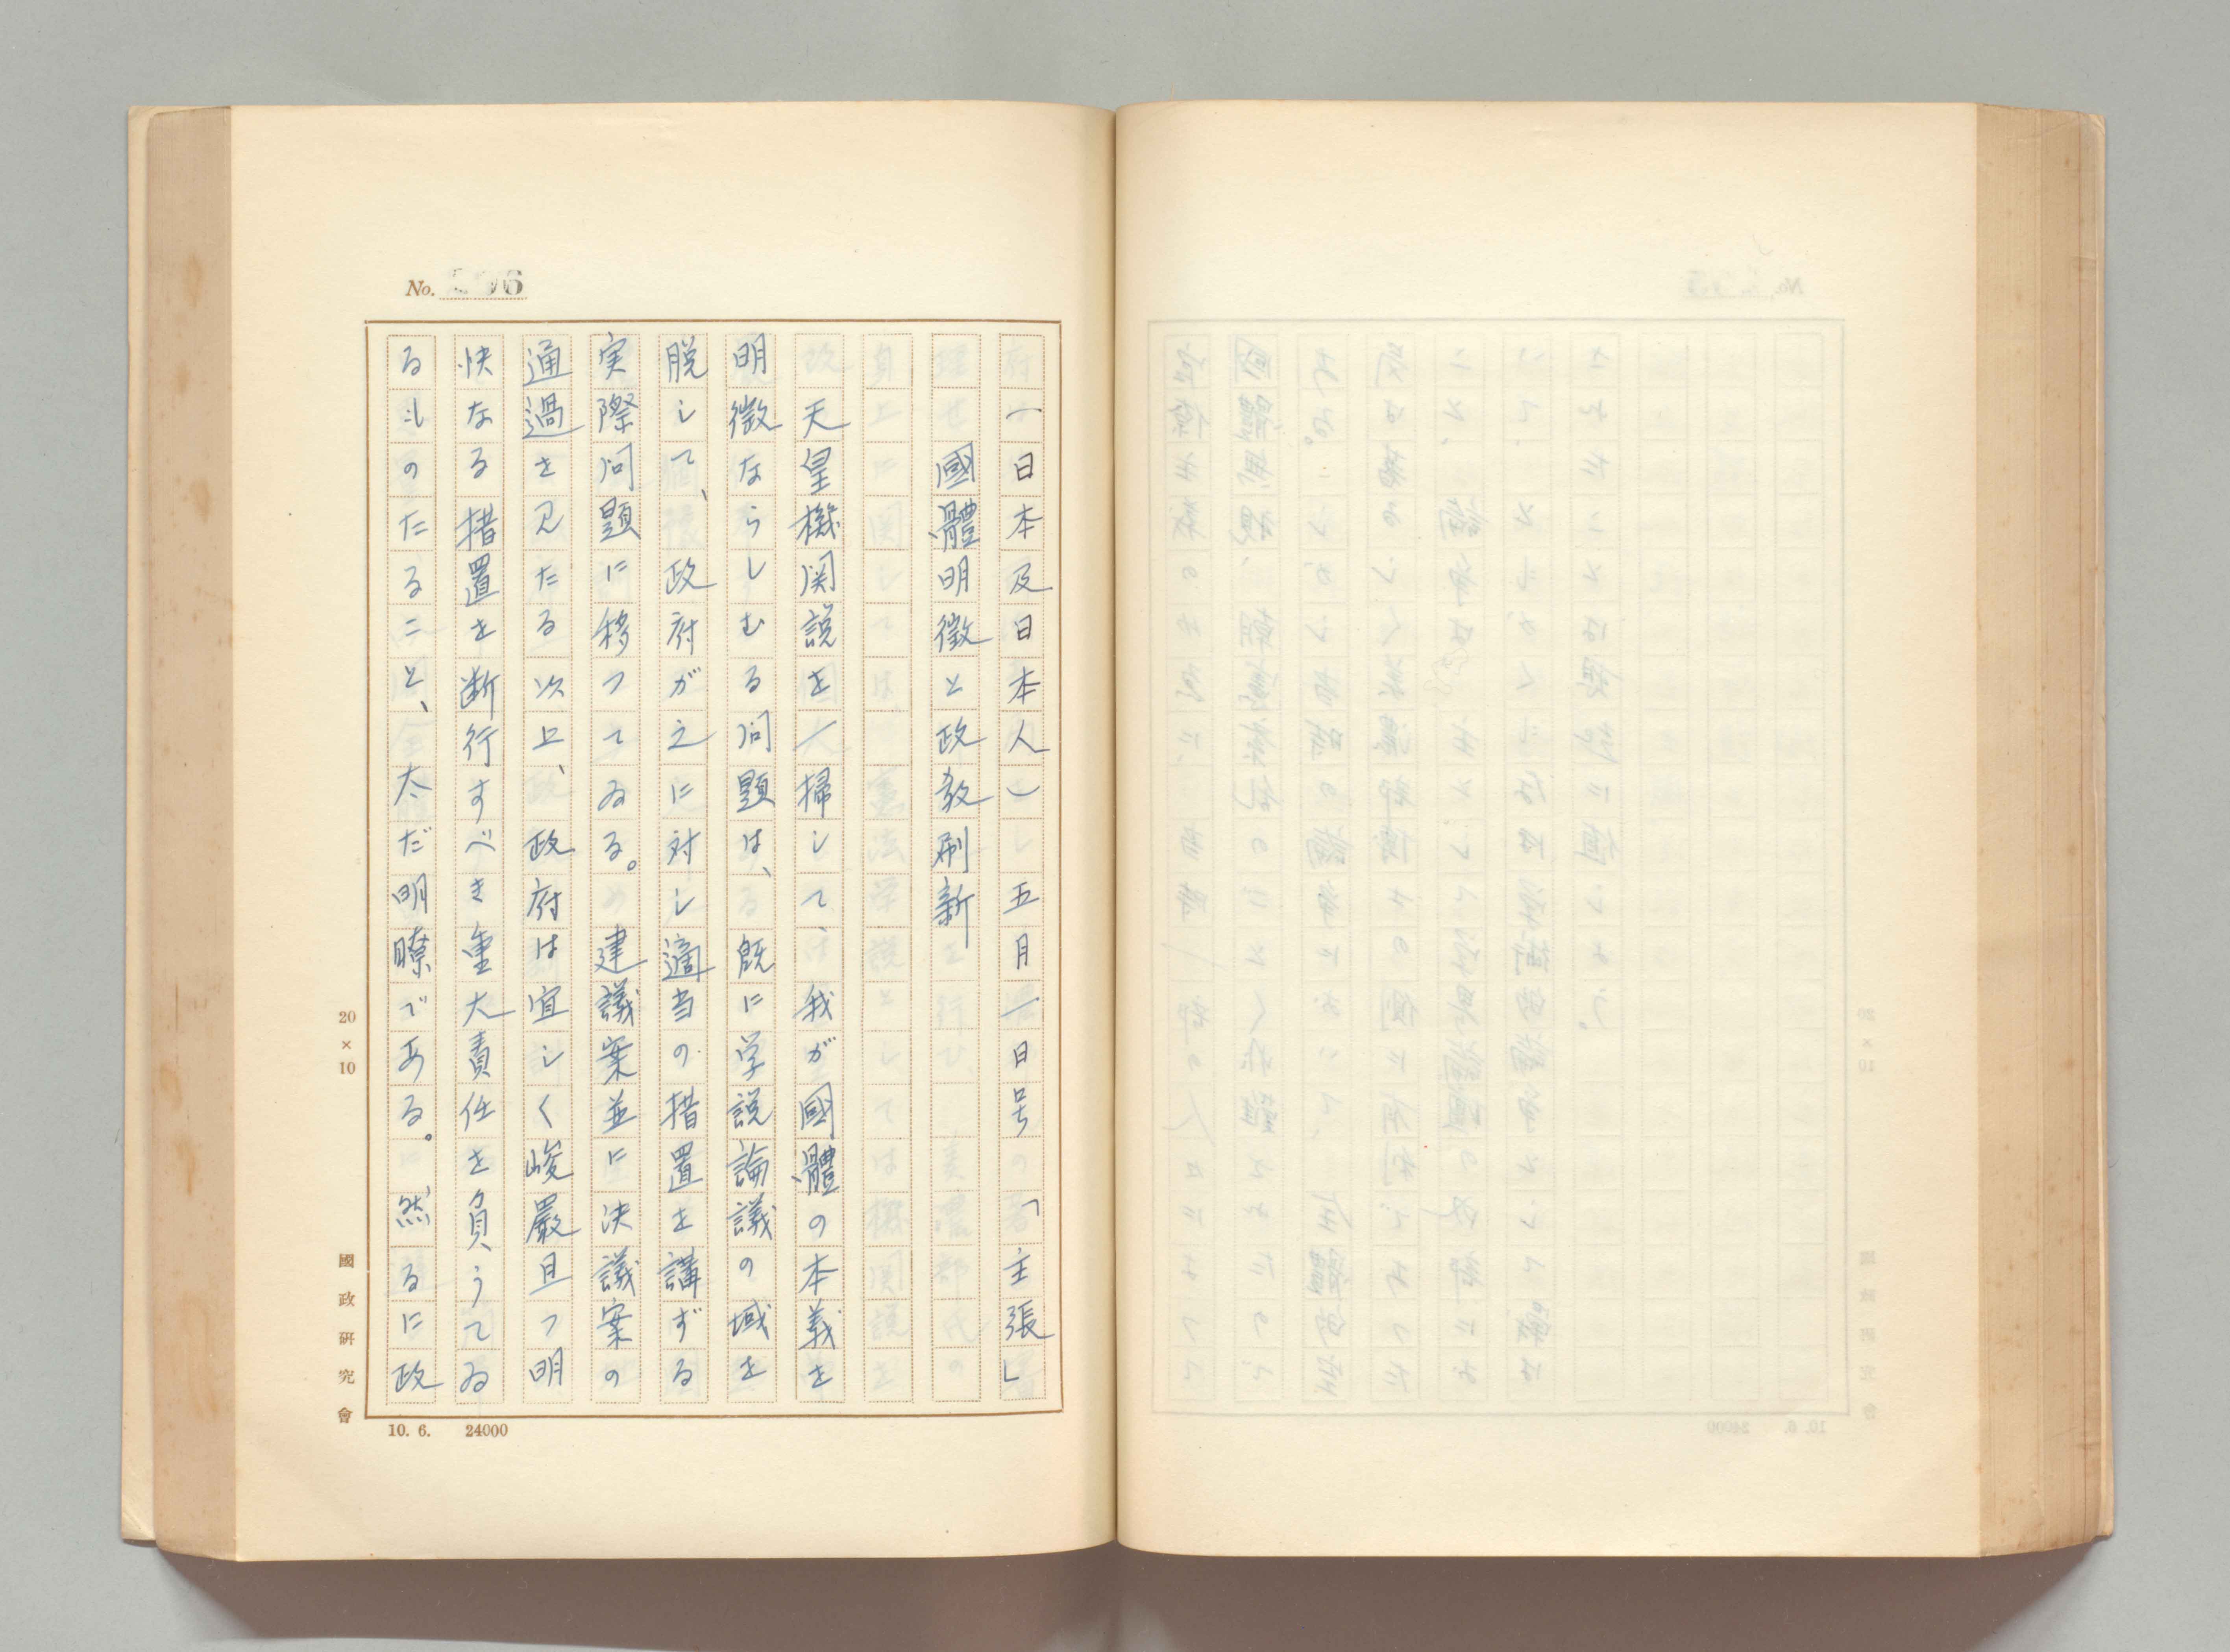 No. 6
(日本及日本人) 五月一日号「主張」
國體明徴と政教刷新
天皇機関説を一掃して、我が國體の本義を
明徴ならしむる問題は、既に学説論議の域を
脱して、政府が之に対し適当の措置を講ずる
実際问題に移つてゐる。建議案並に決議案の
通過を見たる以上、政府は宜しく峻嚴且つ明
快なる措置を断行すべき重大責任を負うてゐ
るものたること、太だ明瞭である。然るに政
20×10
國政研究會
10. 6. 24000